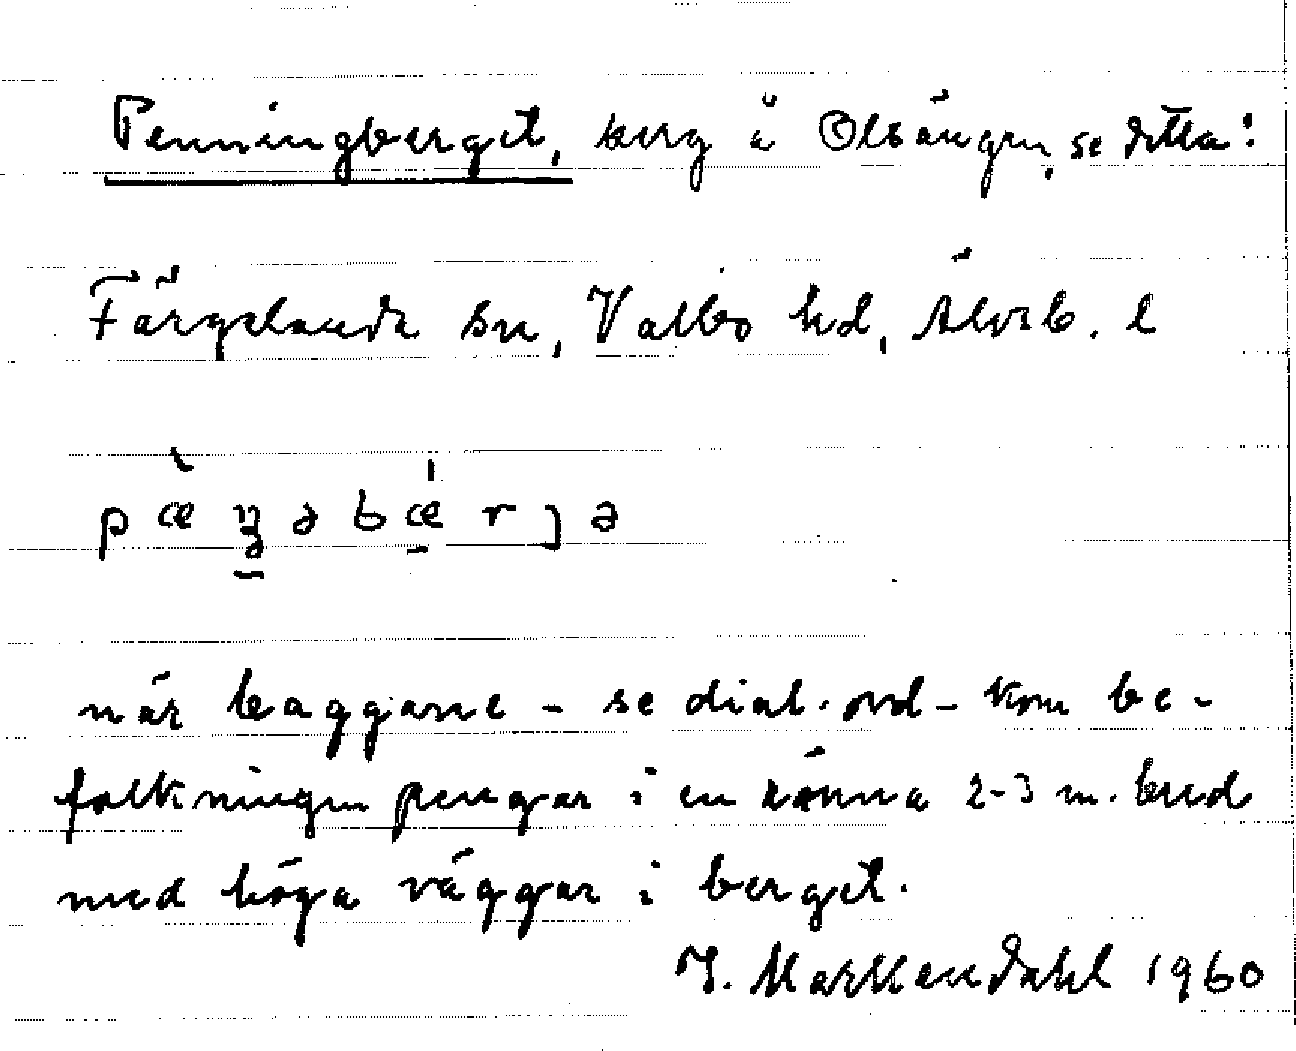 Penningberget, berg å Olsängen, se detta!
Färgelanda sn, Valbo hd, Älvsb. l
når baggarne - se dial. ord - kom be-
folkningen pengar i en ränna 2-3 m. bred
med höga väggar i berget.
J. Markendahl 1960